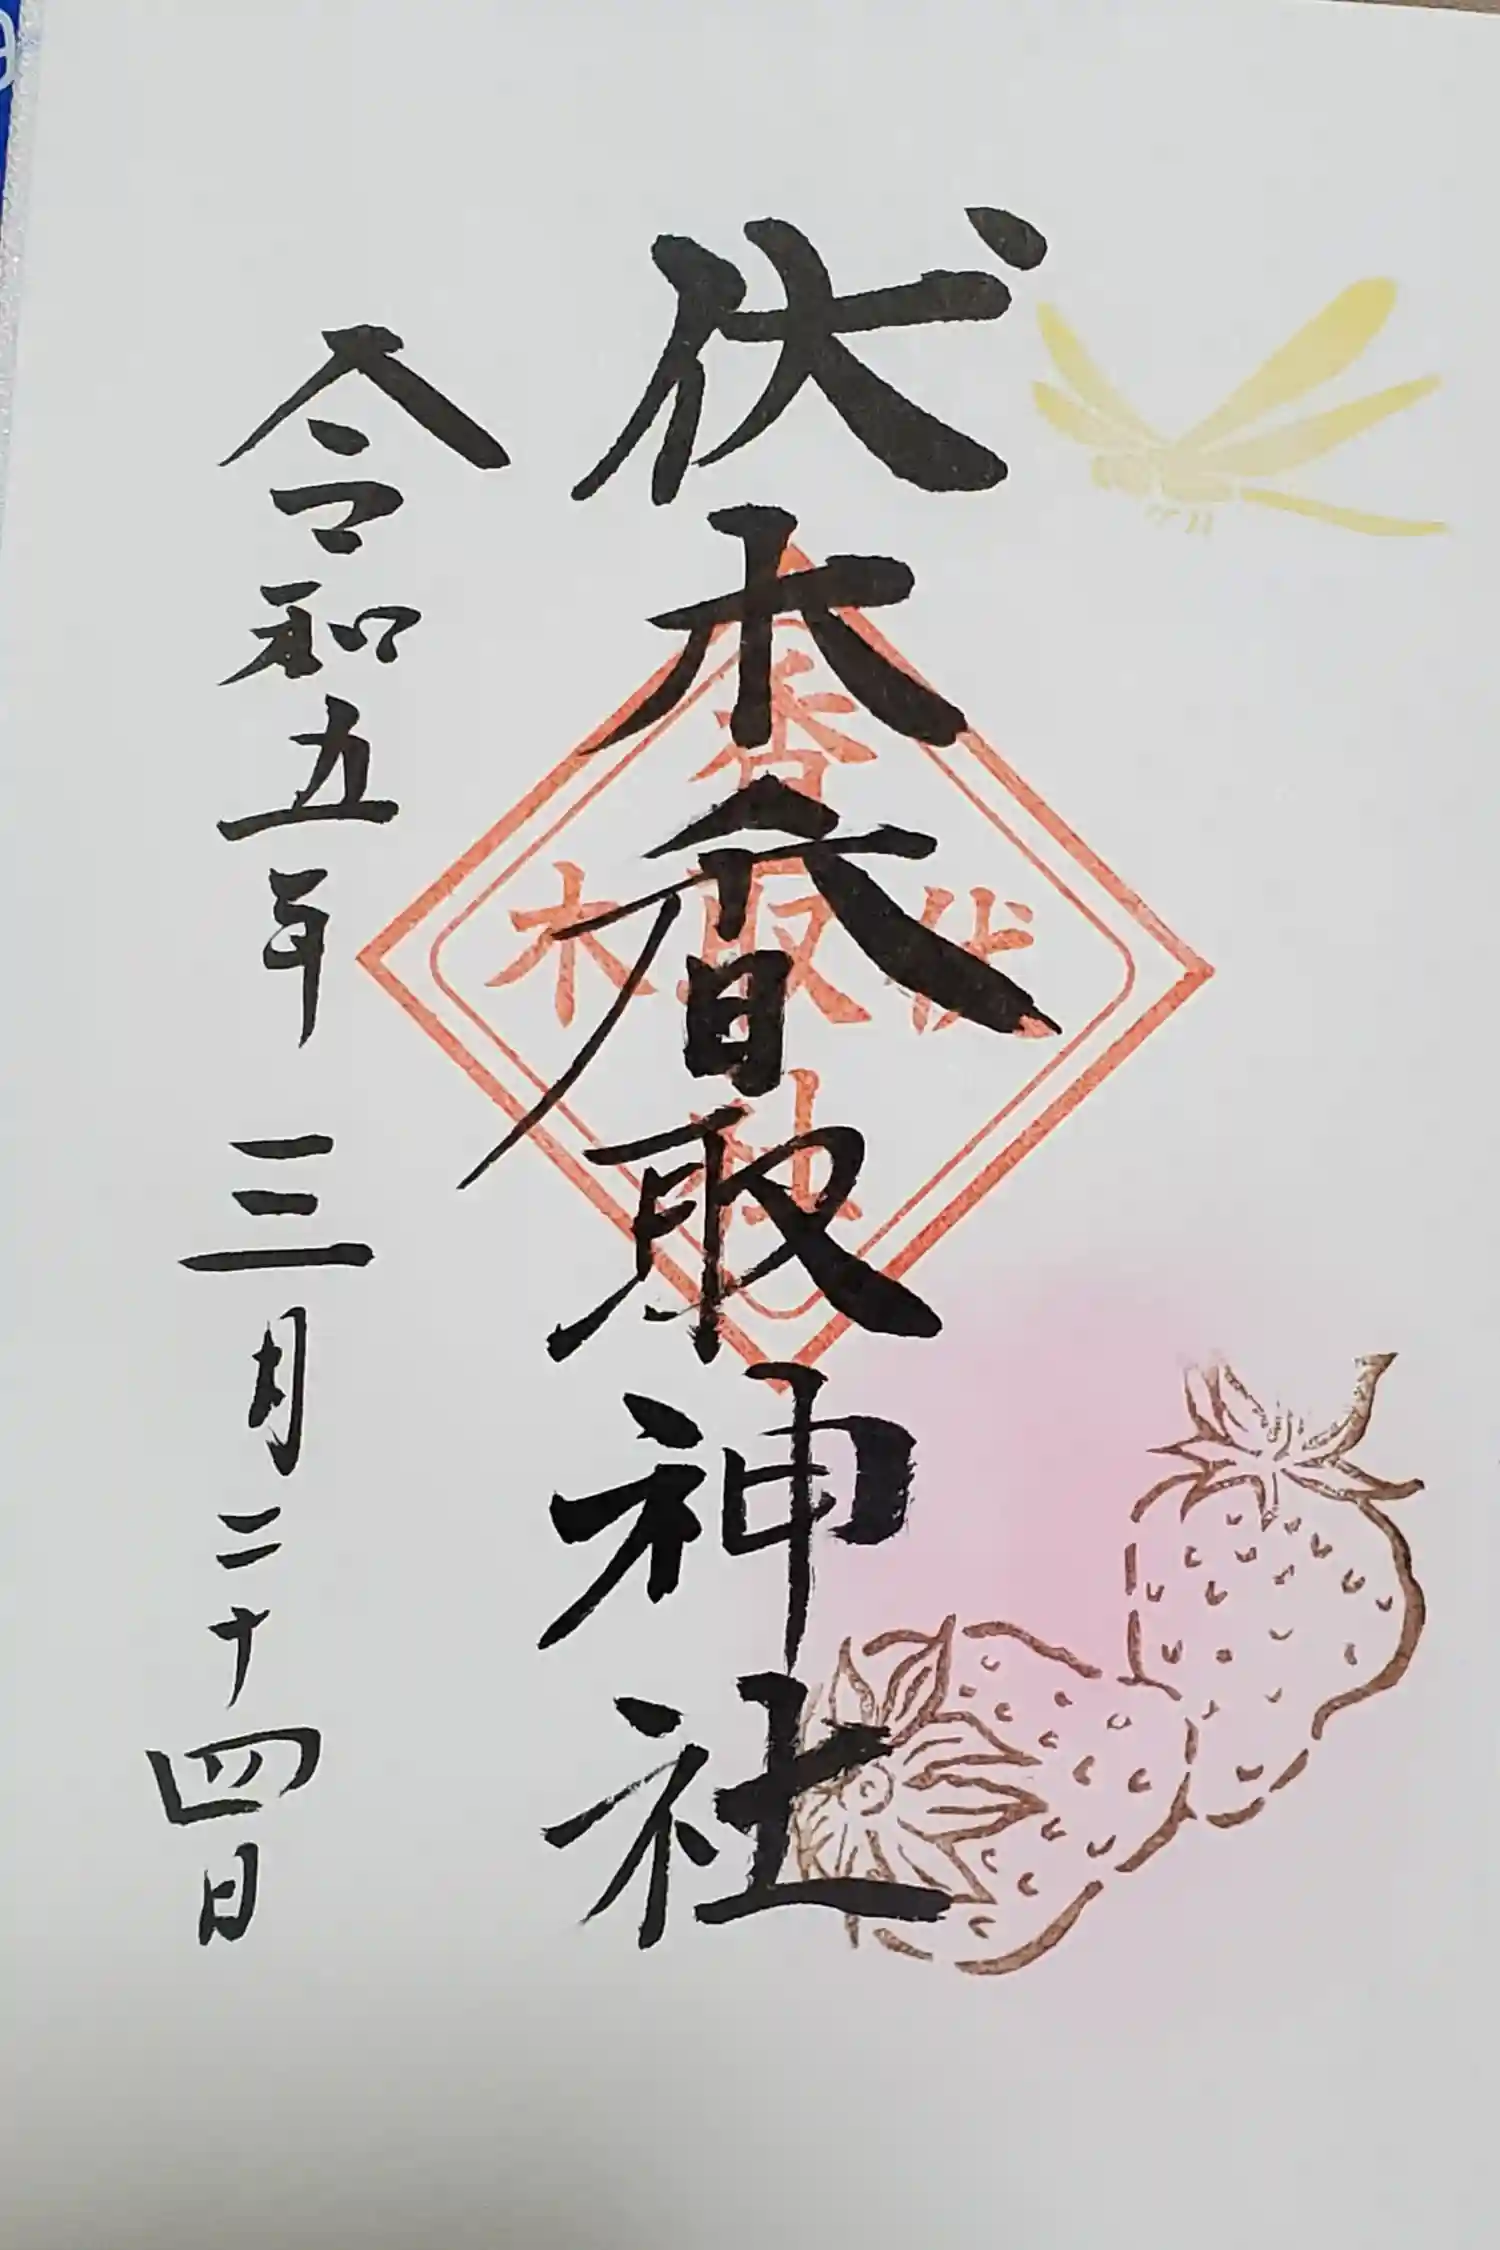 伏木香取神社
香取社
伏木
令和五年三月二十四日